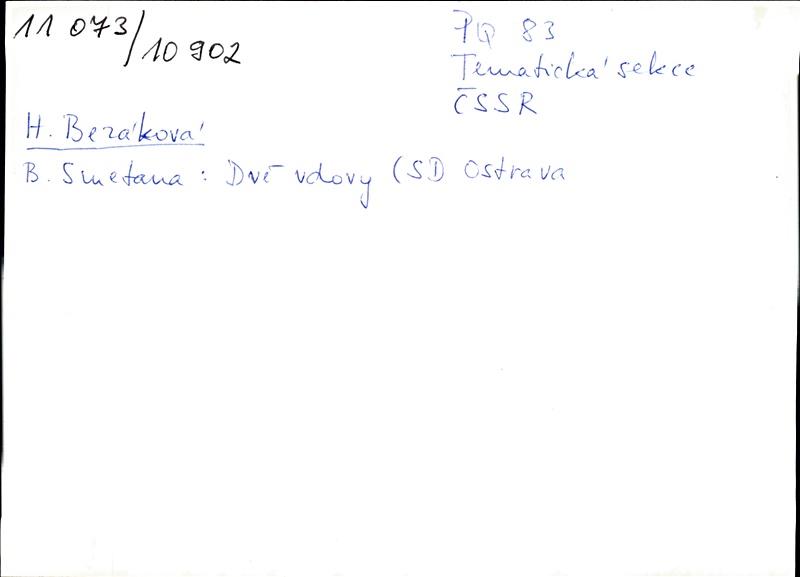 11 073/10 902
PQ 83
Tematická sekce
ČSSR
H. Bezáková
B. Smetana: Dvě vdovy (SD Ostrava